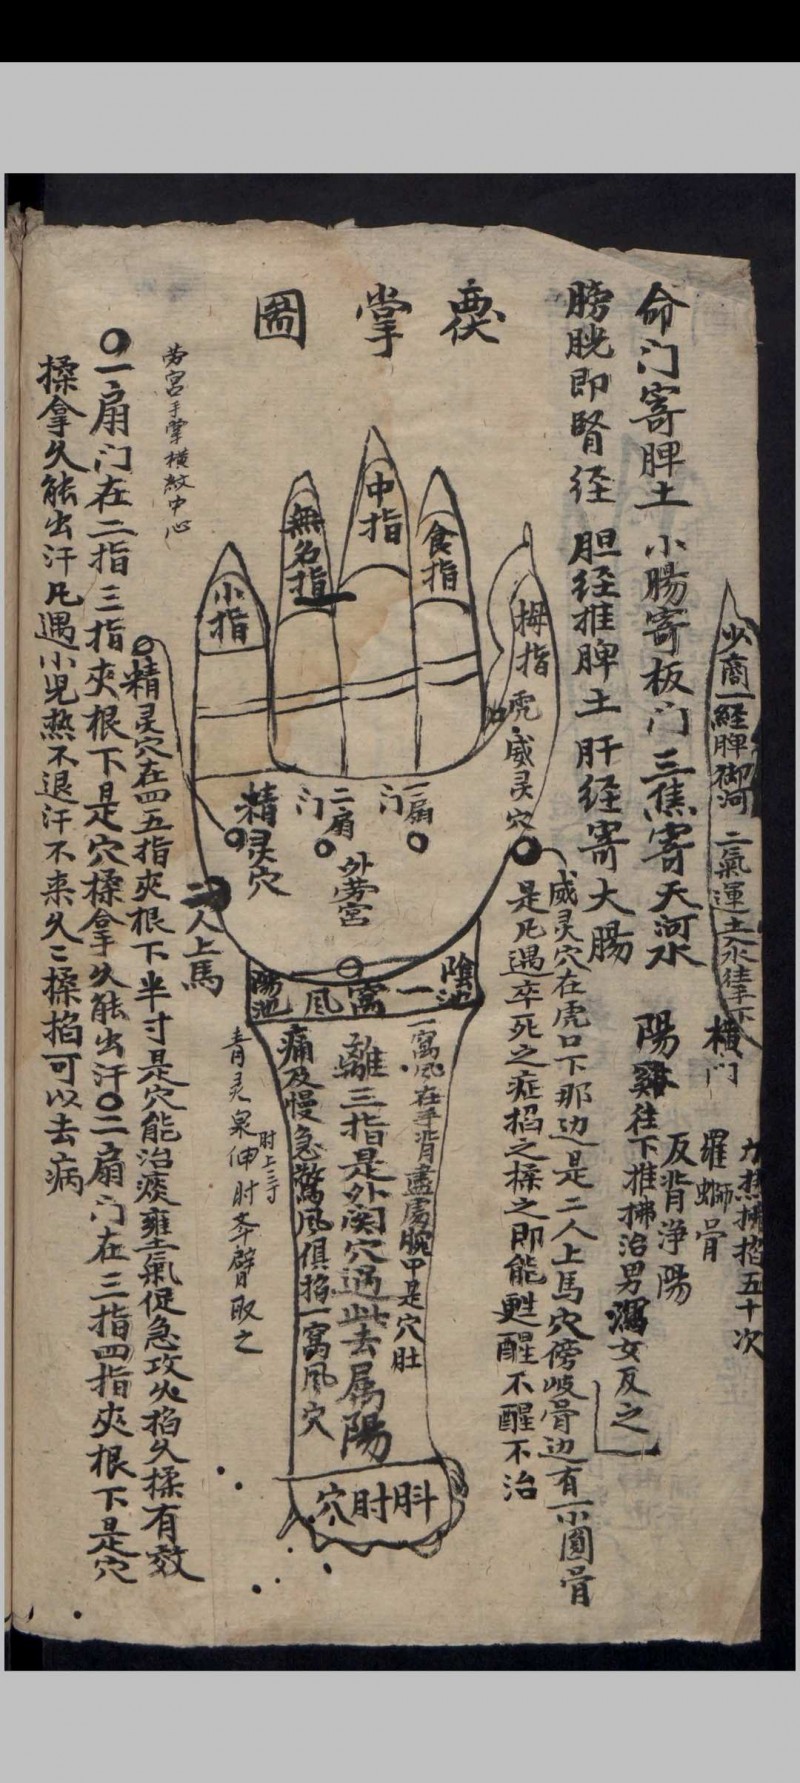 少商一経脾御河
二氣運土入水往手下
横门
羅螄骨
六热拂掐五十次
命门寄脾土 小腸寄板门 三焦寄天河水
陽
往下推拂治男瀉女反之
反背浄陽
膀胱即腎経 胆経推脾土 肝経寄大腸
掌圖
小指
無名指
中指
食指
拇指
虎
威灵穴
精灵穴
二扇门
一扇门
外劳宮
二人上馬
陽池
一窩風
陰池
威灵穴在虎口下那边是二人上馬穴傍岐骨边有一小圓骨
是凡遇卒死之症掐之揉之即能甦醒不醒不治
一窩风在手背盡處腕中是穴肚
離三指是外関穴遇此去属陽
痛及慢急驚风俱掐一窩风穴
斗肘穴
青灵泉伸肘奉臂取之
肘上三寸
劳宮手掌横紋中心
○精灵穴在四五指夾根下半寸是穴能治痰雍氣促急攻火掐久揉有效
○一扇门在二指三指夾根下是穴揉拿久能出汗○二扇门在三指四指夾根下是穴
揉拿久能出汗凡遇小児热不退汗不来久二揉掐可以去病